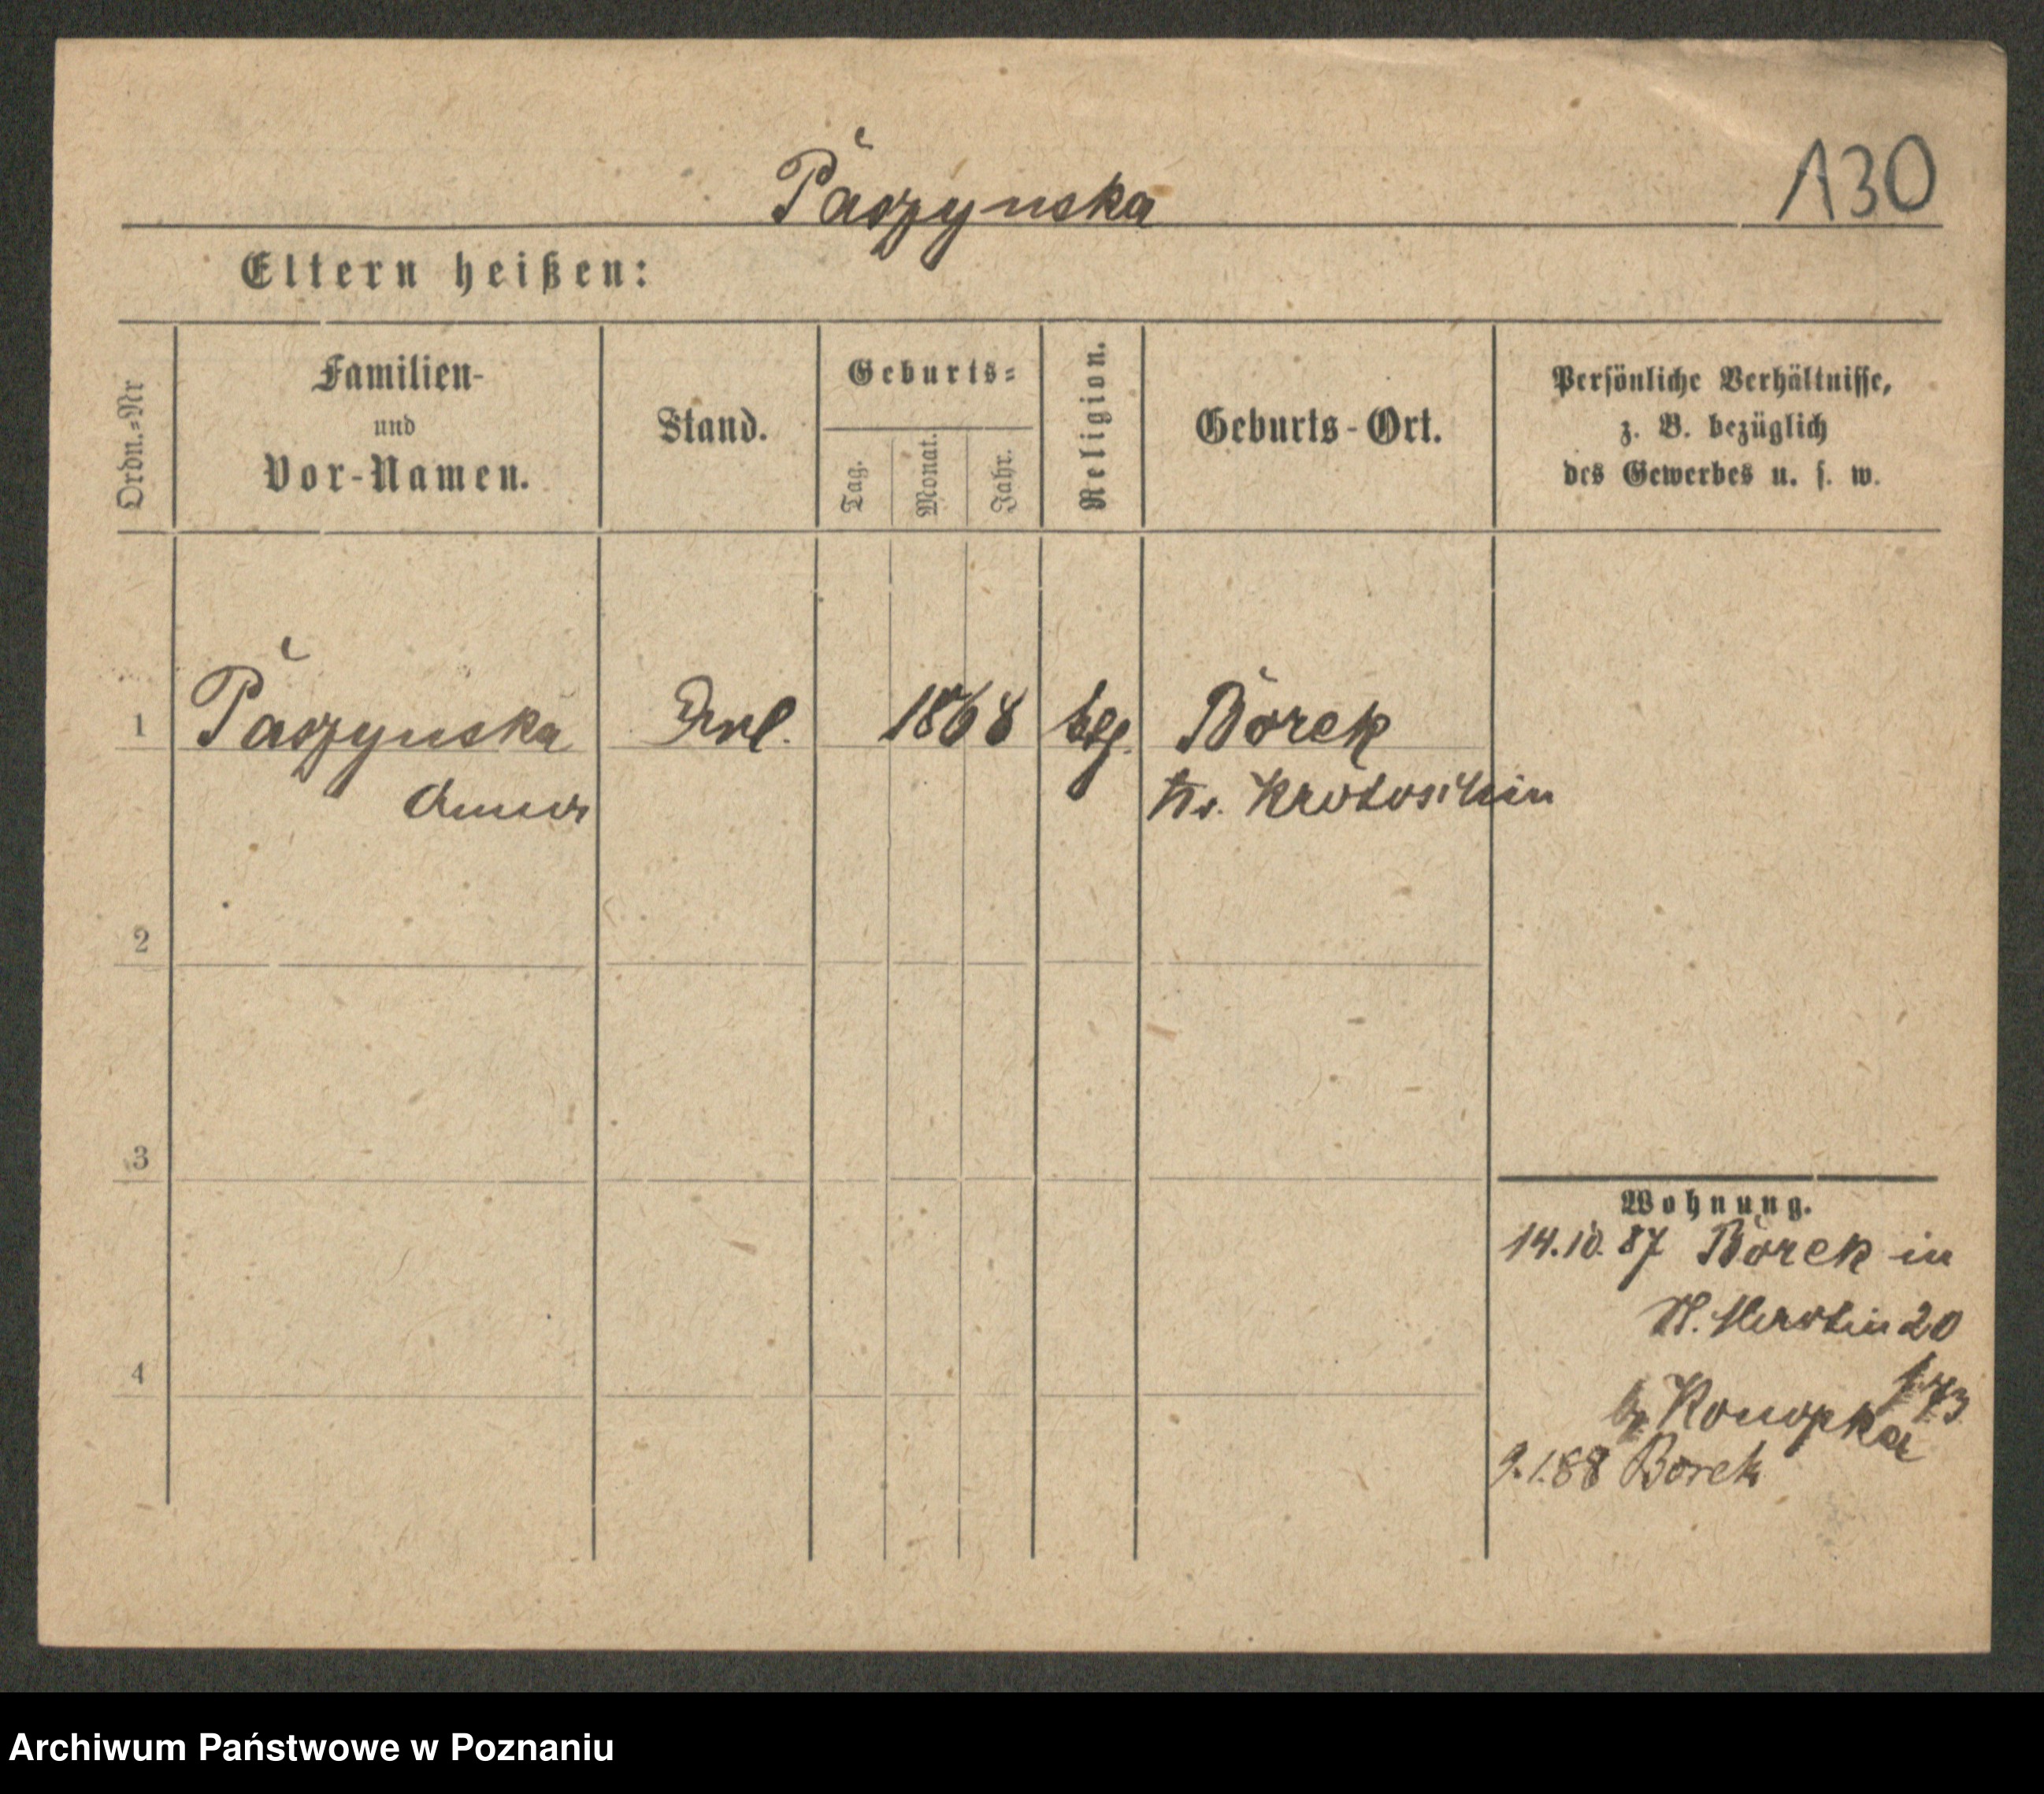 Paszynska
130
Eltern heißen:
Ordn.=Nr
Familien-
und
Vor-Namen.
Stand.
Geburts=
Tag.
Monat.
Jahr.
Religion.
Geburts-Ort.
Persönliche Verhältnisse,
z. B. bezüglich
des Gewerbes u. s. w.
1 Paszynska 1868 Borek
Kr. Krotoschin
2
3
4
Wohnung.
14.10.87 Borek in
St. Martin 20
Konopka
9.1.88 Borek
Archiwum Państwowe w Poznaniu